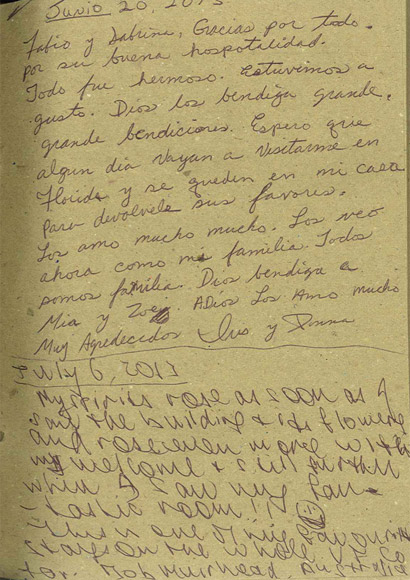 Junio 20, 2013
Fabio y Sabrina, Gracias por todo.
por su buena hospotalidad.
Todo fue hermoso. Estuvimos a
gusto. Dios los bendiga grande,
grande bendiciones. Espero que
algun dia vayan a visitarme en
Florida y se queden en mi casa
para devolvele sus favores.
Los amo mucho mucho. Los veo
ahora como mi familia. Todos
somos familia. Dios bendiga a
Mia y Zoe. ADios Los Amo mucho
Muy Agredecidos y Donna
July 6, 2013
My spirits rose as soon as I
saw the building & its flowers
and rose even more with
my welcome & still further
when I saw my fan-
tastic room!!
This is one of my favourite
stays on the whole
Muirhead Australia